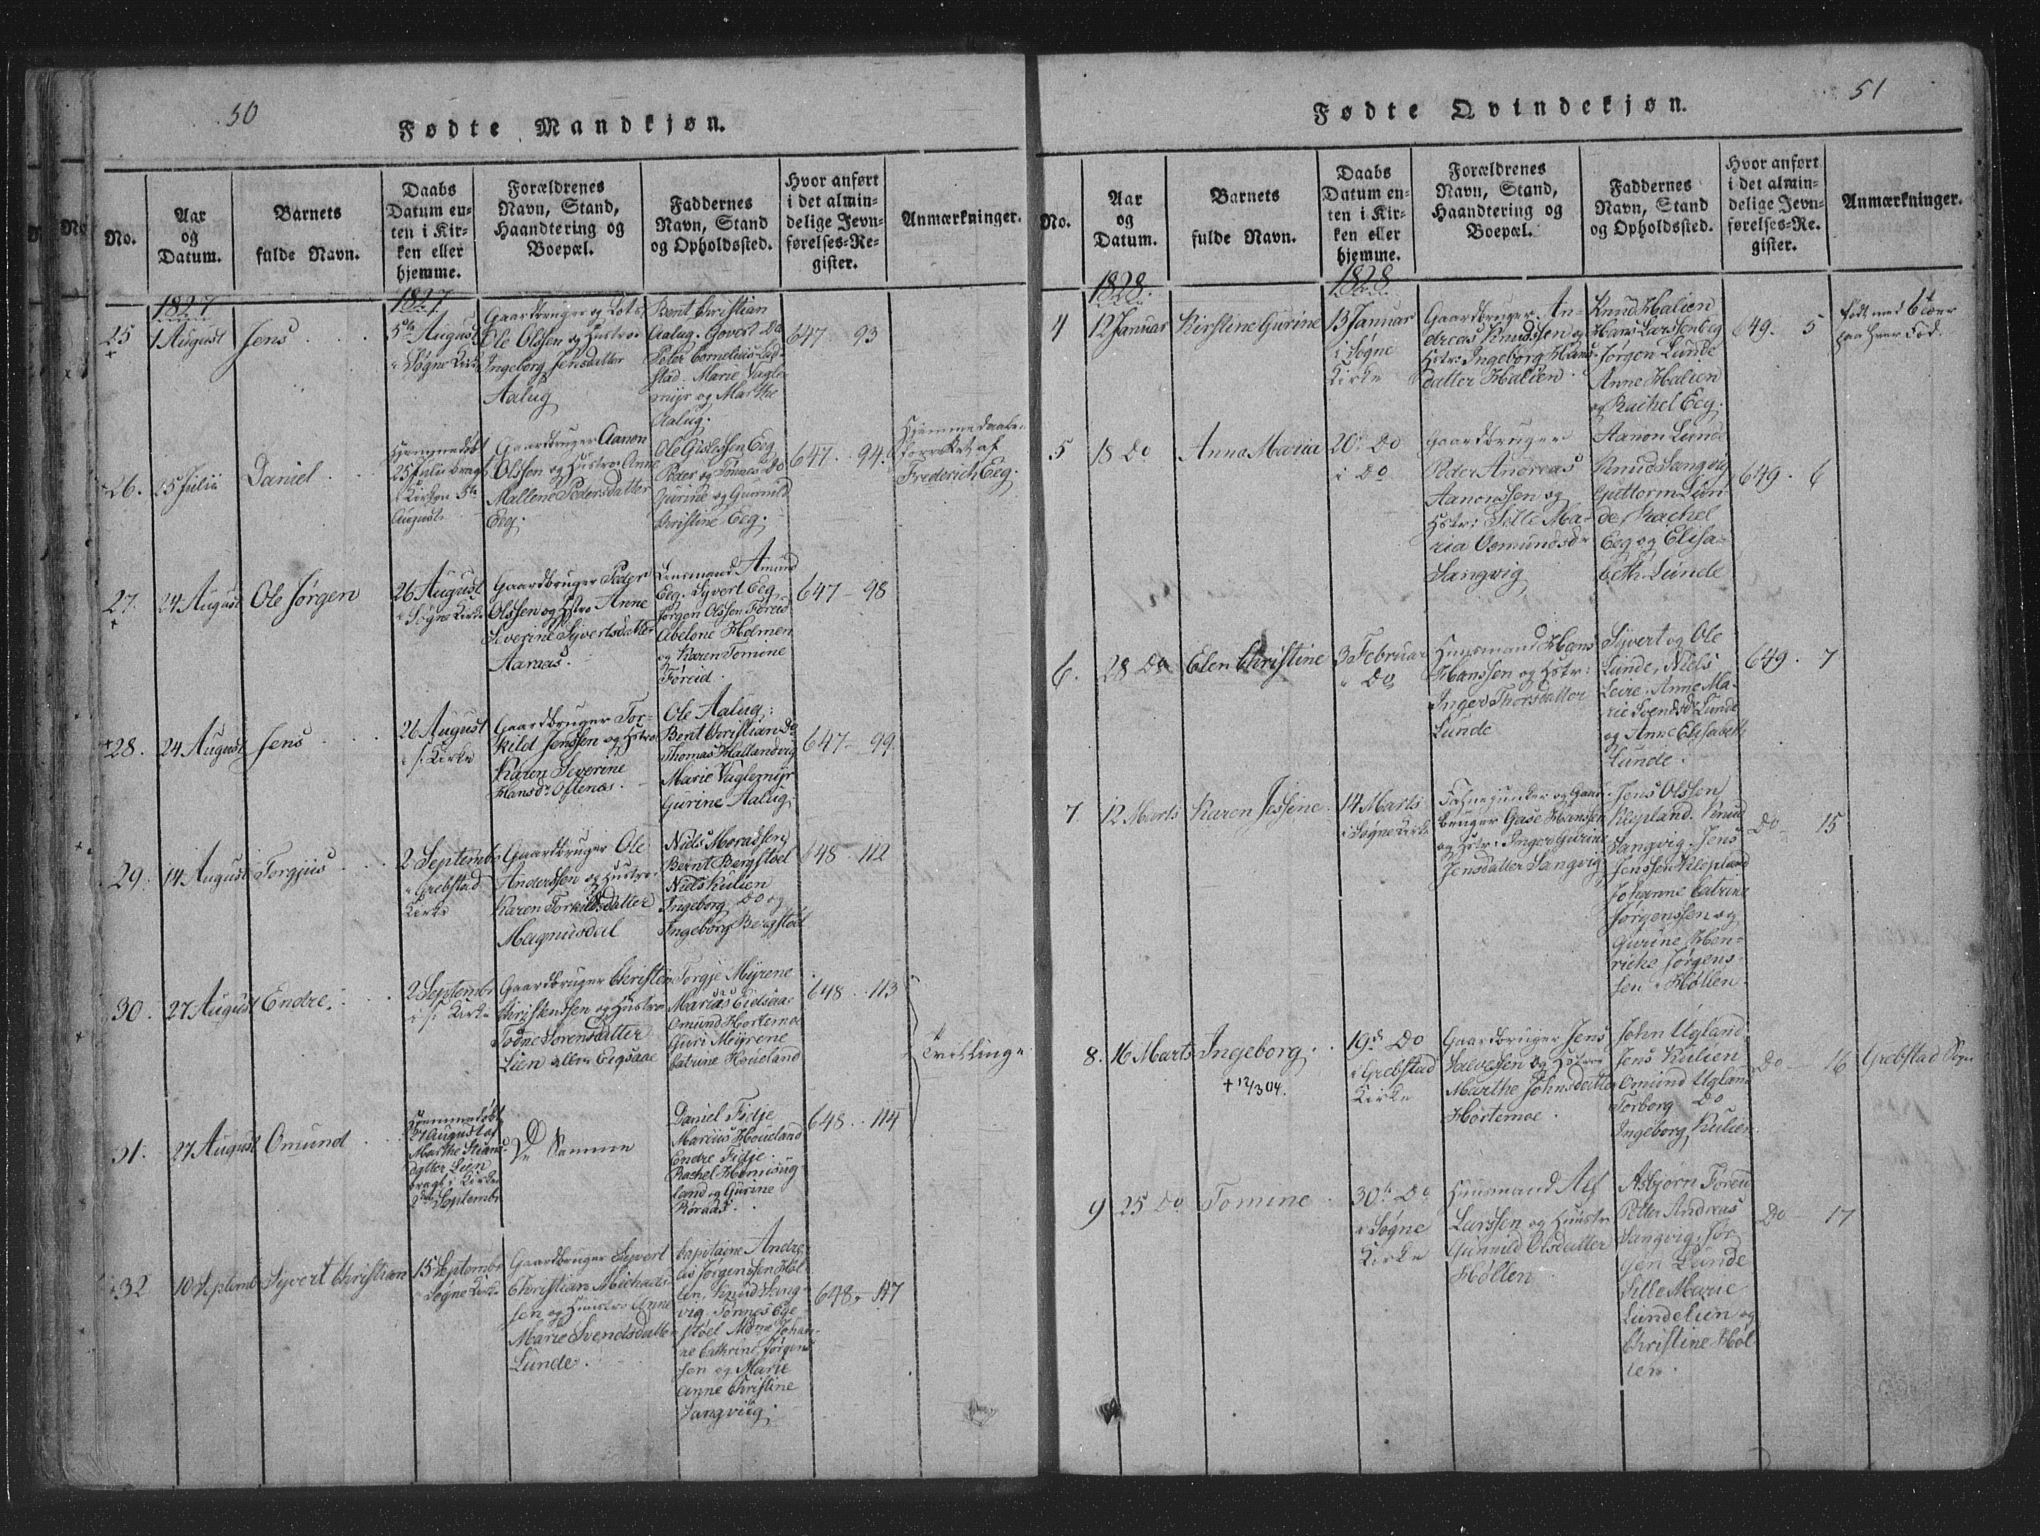 50
Fødte Mandkjøn.
No.
Aar
og
Datum.
Barnets
fulde Navn.
Daabs
Datum en-
ten i Kir-
ken eller
hjemme.
Forældrenes
Navn, Stand,
Haandtering og
Boepæl.
Faddernes
Navn, Stand
og Opholdssted.
Hvor anført
i det almin-
delige Jevn-
førelses-Re-
gister.
Anmærkninger.
1827
1827
25
+
1 August
Jens
5te August
i Søgne Kirke
Gaardbruger og Lots
Ole Olssen og Hustroe
Ingeborg Jensdatter
Aalug
Bent Christian
Aalug. Govert Do
Peter Cornelius
Marie Vagle-
myr og Marthe
Aalug.
647 - 93
26.
25 Julii
Daniel
Hjemmedøbt
25 Julii bragt
i Kirken 5te
August
Gaardbruger Aanon
Olssen og Hustroe Anne
Mallene Pedersdatter
Eeg.
Ole Gislessen Eeg
Peder og Tønnes Do
Gurine og Gunnild
Christine Eeg.
647 - 94.
Hjemmedaaben
forrettet af
Frederich Eeg.
27.
+
24 August
Ole Jørgen
26 August
i Søgne Kirke
Gaardbruger Peder
Olssen og Hstro Anne
Severine Syvertsdatter
Aaraas.
Lensmand Amund
Eeg. Syvert Eeg
Jørgen Olssen Foreid
Abelone Holmen
og Karen Tomine
Foreid.
647 - 98
+28.
24 August
Jens
26 August
i S: Kirke
Gaardbruger Tor-
kild Jenssen og Hstro
Karen Severine
Hansdr Oftenæs.
Ole Aalug.
Bent Christian Do
Thomas Hallandvig
Marie Vaglemyr
Gurine Aalug.
647 - 99.
29.
14 August
Torgjus
2 Septembr
i Grebstad
Kirke
Gaardbruger Ole
Anderssen og Hustroe
Karen Torkildsdatter
Magnusdal
Niels Monadssen
Bernt Bergstøel
Niels Kulien
Ingeborg Do og
Ingeborg Bergstøel
648 - 112
30.
27 August
Endre.
2 Septembr
i S: Kirke
Gaardbruger Christen
Christenssen og Hustroe
Todne Sorensdatter
Lien
Torgje Myrene
Omund Hortemoe
Guri Myrene
Catrine Houeland
648 - 113
Tvillinge
31.
27 August
Omund
Hjemmedøbt
27 August af
Marthe
datter Lien
bragt i Kirke
2den Septembr
De Samme
Daniel Fidje
Marcus Houeland
Endre Fidje.
Rachel
land og Gurine
Roraas.
648 - 114
+32
10 Septembr
Syvert Christian
15 Septembr
i Søgne Kirke
Gaardbruger Syvert
Christian Michaels-
sen og Hustroe Anne
Marie Svendsdatter
Lunde.
Capitaine Andre-
as Jørgenssen Høl-
len, Knud Lang-
vig. Tønnes Ege-
støel Johan-
ne Cathrine Jørgens-
sen og Marie
Anne Christine
Langvig.
648 - 117
51
Fødte Qvindekjøn.
No.
Aar
og
Datum.
Barnets
fulde Navn.
Daabs
Datum en-
ten i Kir-
ken eller
hjemme.
Forældrenes
Navn, Stand,
Haandtering og
Boepæl.
Faddernes
Navn, Stand
og Opholdssted.
Hvor anført
i det almin-
delige Jevn-
førelses-Re-
gister.
Anmærkninger.
1828.
1828
4
12 Januar
Kirstine Gurine
13 Januar
i Søgne
Kirke
Gaardbruger An-
dreas Knudssen og
Hstr: Ingeborg Hans-
datter Halien.
Knud Halien
Hans Larssen Eeg
Jørgen Lunde
Anne Halien
og Rachel Eeg.
649. 5
født med 6 tæer
paa hver Fod.
5
18 Do
Anna Maria
20. Do
i Do
Gaardbruger
Peder Andreas
Aanonssen og
Hstr: Sille Ma-
ria Osmundsdr
Langvig
Aanon Lunde
Knud Langvig
Guttorm Lun-
de, Rachel
Eeg og Elisa-
beth Lunde
649. 6
6.
28 Do
Elen Christine
3 Februar
i Do
Huusmand Hans
Hanssen og Hstr:
Inger Thorsdatter
Lunde
Syvert og Ole
Lunde, Niels
Leire. Anne Ma-
rie Svendsdr Lunde
og Anne Elisabeth
Lunde.
649. 7
7.
12 Marts
Karen Jessine.
14 Marts
i Søgne Kirke
Fahnejunker og Gaard-
bruger Gase Hanssen
og Hstr: Inger Gurine
Jensdatter Langvig
Jens Olssen
Klepland. Knud
Langvig. Jens
Jenssen Klepland
Johanne Catrine
Jørgenssen og
Gurine Hen-
ricke Jørgens-
sen Høllen.
Do - 15
8.
16 Marts
Ingeborg.
+ 12/3 04.
19d Do
i Grebstad
Kirke
Gaardbruger Jens
Salvessen og Hstroe
Marthe Johnsdatter
Hortemoe.
John Ugland
Jens Kulien
Omund Ugland
Torborg Do
Ingeborg Kulien
Do - 16
Grebstad Sogn
9
25 Do
Tomine
30te Do
i Søgne
Kirke
Huusmand Alf
Larssen og Huustr:
Gunnild Olsdatter
Høllen
Asbjørn Foreid
Petter Andreas
Langvig. Jør-
gen Lunde
Sille Marie
Lundelien og
Christine Høl-
len.
Do - 17